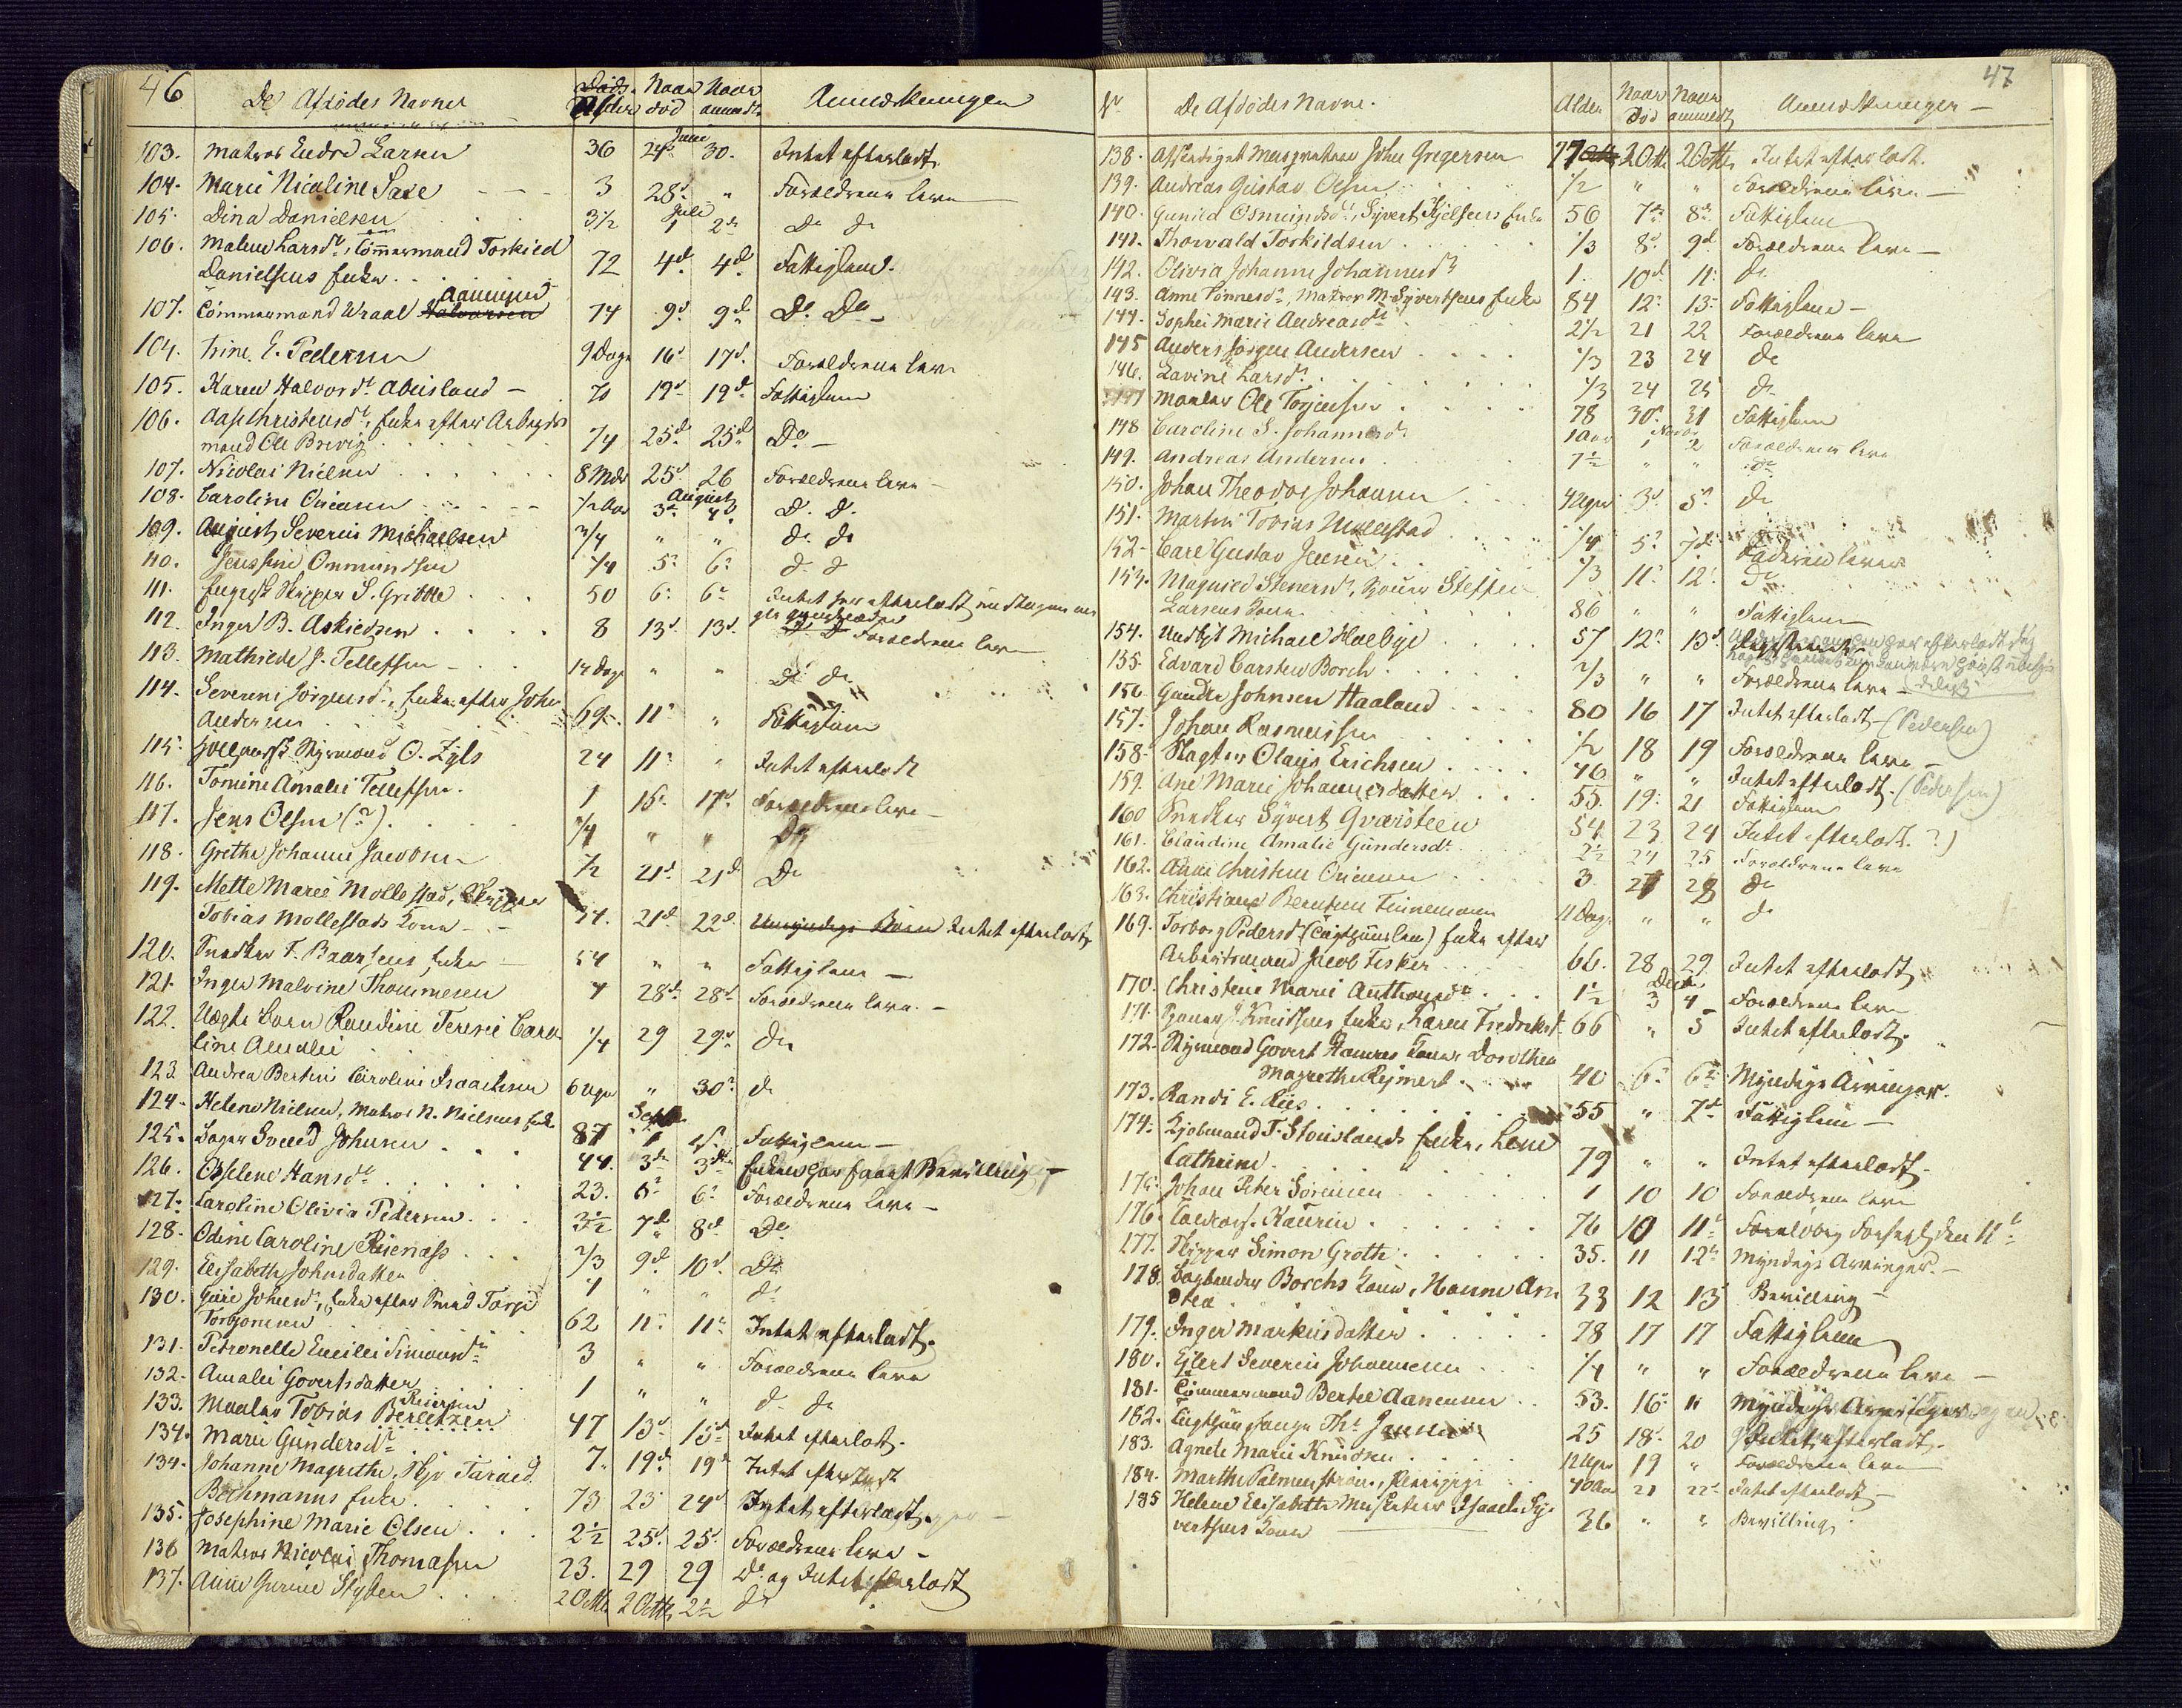 46
De Afdødes Navne Døds Alder Naar død Naar anmeldt Anmærkninger
103. Matros Endre Larsen 36 24d Juni 30. Intet efterladt.
104. Marie Nicoline Saxe 3 28d " Forældrene leve
105. Dina Danielsen 3½ Juli 1 2d Do do
106. Malene Larsdt, Tømmermand Torkild
Danielsens Enke 72 4d 4d Fattiglem.
107. Tømmermand Wraal Halvorsen Aanensen 74 9d 9d Do Do
104. Trine E. Pedersen 9 Dage 16d 17d Forældrene leve
105. Karen Halvorsdt Abusland 70 19d 19d Fattiglem
106. Aase Christensdt, Enke efter Arbeyds
mand Ole Brevig 74 25d 25d Do
107. Nicolai Nielsen 8 Mdr 25d 26 Forældrene leve
108. Caroline Omensen ½ Aar August 3d 4d D. D.
109. August Severin Michaelsen 3/4 " " do do
110. Jenssine Ommundsen ¼ 5d 6d d. d
111. Engelsk Skipper S. Gribble 50 6d 6d Intet her efterladt
112. Inger B. Askildsen 8 13d 13d Forældrene leve
113. Mathilde J. Tellefsen 14 Dage " " do do
114. Severine Jørgensdt, Enke efter John
Andersen 69. 11d " Fattiglem
115. Hollandsk Styrmand O. Zyls 24 11d " Intet efterladt
116. Tomine Amalie Tellefsen. 1 15d 17d Forældrene leve
117. Jens Olsen (?) ¾ " " Do
118. Grethe Johanne Jacobsen ½ 21d 21d Do
119. Mette Marie Mollestad, Skipper
Tobias Mollestads Kone 34. 21d 22d Umyndige Børn Intet efterladt
120. Snedker T. Baarsens Enke 54 " " Fattiglem
121. Inger Malvine Thommesen 4 28d 28d Forældrene leve.
122. Uægte Barn Randine Teresie Caro
line Amalie ¼ 29 29d Do
123. Andrea Bertine Caroline Isaachsen 6 Uger " 30d d
124. Helene Nielsen, Matros N. Nielsens Enke 87 Septbr 1 1d Fattiglem
125. Søger Svend Johnsen 44. 3d 3d Enken har faaet Bevilling
126. Osselene Hansdt 23. 5d 6d Forældrene leve
127. Caroline Olivia Pedersen 3½ 7d 8d Do
128. Odine Caroline Reienæss 2/3 9d 10d Do
129. Elisabeth Johnsdatter 4 " " do
130. Guri Johnsdt, Enke efter Smed Torge
Torgersen 62 11d 11d Intet efterladt.
131. Petronelle Emilie Simonsdt 3 " " Forældrene leve
132. Amalie Govertsdatter 1 " " d. do
133. Maaler Tobias Berentzen Reiersen 47 13d 15d Intet efterladt.
134. Marie Gundersdt 7. 19d 19d Intet efterladt
134. Johanne Magrethe, Skpr Tarald
Bechmanns Enke 73 23 24d Intet efterladt
135. Josephine Marie Olsen 2½ 25d 25d Forældrene leve
136 Matros Nicolai Thomasen 23. 29 29 Do og Intet efterladt
137. Anne Gurine Styben 2 Octb 2 Octb 2d do
47
No De Afdødes Navne. Alder Naar død Naar anmeldt Anmærkninger
138. Afskediget Mariner John Gregersen 77 2 Octb 2 Octb Intet efterladt.
139. Andreas Gustav Olsen ½ " " Forældrene leve
140. Gunild Osmundsdt, Syvert Kjelsens Enke 56 7d 8d Fattiglem
141. Thorvald Torkildsen 1/3 8d 9d Forældrene leve
142. Olivia Johanne Johannesdt 1. 10d 11d do
143. Anne Tønnesdt, Matros M. Syvertsens Enke 84 12d 13d Fattiglem
144. Sophie Marie Andreasdt 2½ 21 22 Forældrene leve
145 Anders Jørgen Andersen 1/3 23 24 do
146. Lavine Larsdt 1/3 24 25 do
147 Maaler Ole Torjusen 78 30d 31 Fattiglem
148 Caroline S. Johannesdt 1 Aar Novbr 1 2 Forældrene leve
149. Andreas Andersen 7½ " " do
150. Johan Theodor Johannsen 4 Uger 3d 5d do
151. Martin Tobias Mollestad ¼ 5d 7d Faderen lever
152. Carl Gustav Jensen 1/3 11d 12d Do
153. Magnild Stenersdt, Steffen
Larsens Kone 86 " " Fattiglem
154. Undbyt Michael Holbye 57 12d 13d
155. Edvard Carsten Borch 2/3 " " Forældrene leve
156. Gunder Johnsen Haaland 80 16 17 Intet efterladt (Pedersen)
157. Johan Rasmussen ½ 18 19 Forældrene leve
158. Slagter Olaus Erichsen 46 " " Intet efterladt. (Pedersen)
159. Ane Marie Johannesdatter 55. 19d 21 Fattiglem
160 Snedker Syvert Qvarsteen 54 23 24 Intet efterladt. ?)
161. Claudine Amalie Gundersdt 2½ 24 25 Forældrene leve
162. Anne Christine Omensen 3 27 28 do
163. Christiane Berntine Tinnemann 11 Dage " " do
169. Torborg Pedersdt (Tugthuuslem) Enke efter
Arbeitsmand Jacob Fisker 66. 28 29 Intet efterladt
170. Christine Marie Anthonsdt 1½ Decbr 3 4 Forældrene leve
171. J. Knudsens Enke, Karen Fredriksdt 66 " 5 Intet efterladt.
172. Styrmand Govert Hanssens Kone Dorothea
Magrethe Reymert 40 6d 6d Myndige Arvinger.
173. Randi E. Riis 55 " 7d Fattiglem
174. Kjøbmand T. Stouslands Enke, Lene
Cathrine 79 " " Intet efterladt.
175. Johan Peter Sørensen 1 10 10 Forældrene leve
176. Kaurin 76 10 11d Forseglet den 11d
177. Skipper Simon Grothe 35. 11 12d Myndige Arvinger.
178. Bogbinder Borchs Kone, Hanne An
drea 33 12 13 Bevilling
179. Inger Markusdatter 78 17 17 Fattiglem
180. Eilert Severin Johannesen ¼ " " Forældrene leve
181. Tømmermand Bertel Aanensen 53. 16d " Myndige Arvinger
182. Tugthuusfange Ths Jansen 25 18d 20 Intet efterladt.
183. Agnete Marie Knudsen 12 Uger 19 " Forældrene leve
184. Marthe Palmenstrøm, 40 Aar 21 22d Intet efterladt
185 Helene Elisabeth Musketeer Isaach Sy
vertsens Kone 36 " " Bevilling